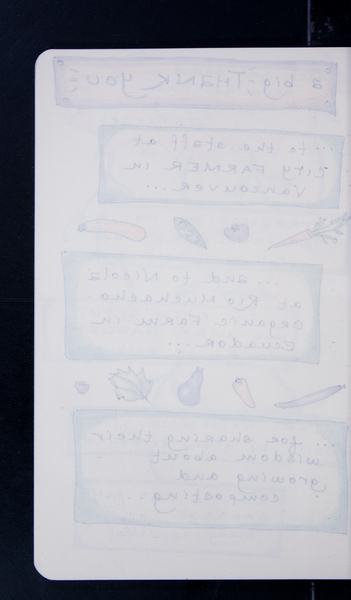 a big THANK you
... to the staff at
City FARMER in
Vancouver...
... and to Nicola
at Rio Muchacho
organic Farm in
Ecuador...
... for sharing their
wisdom about
growing and
composting.